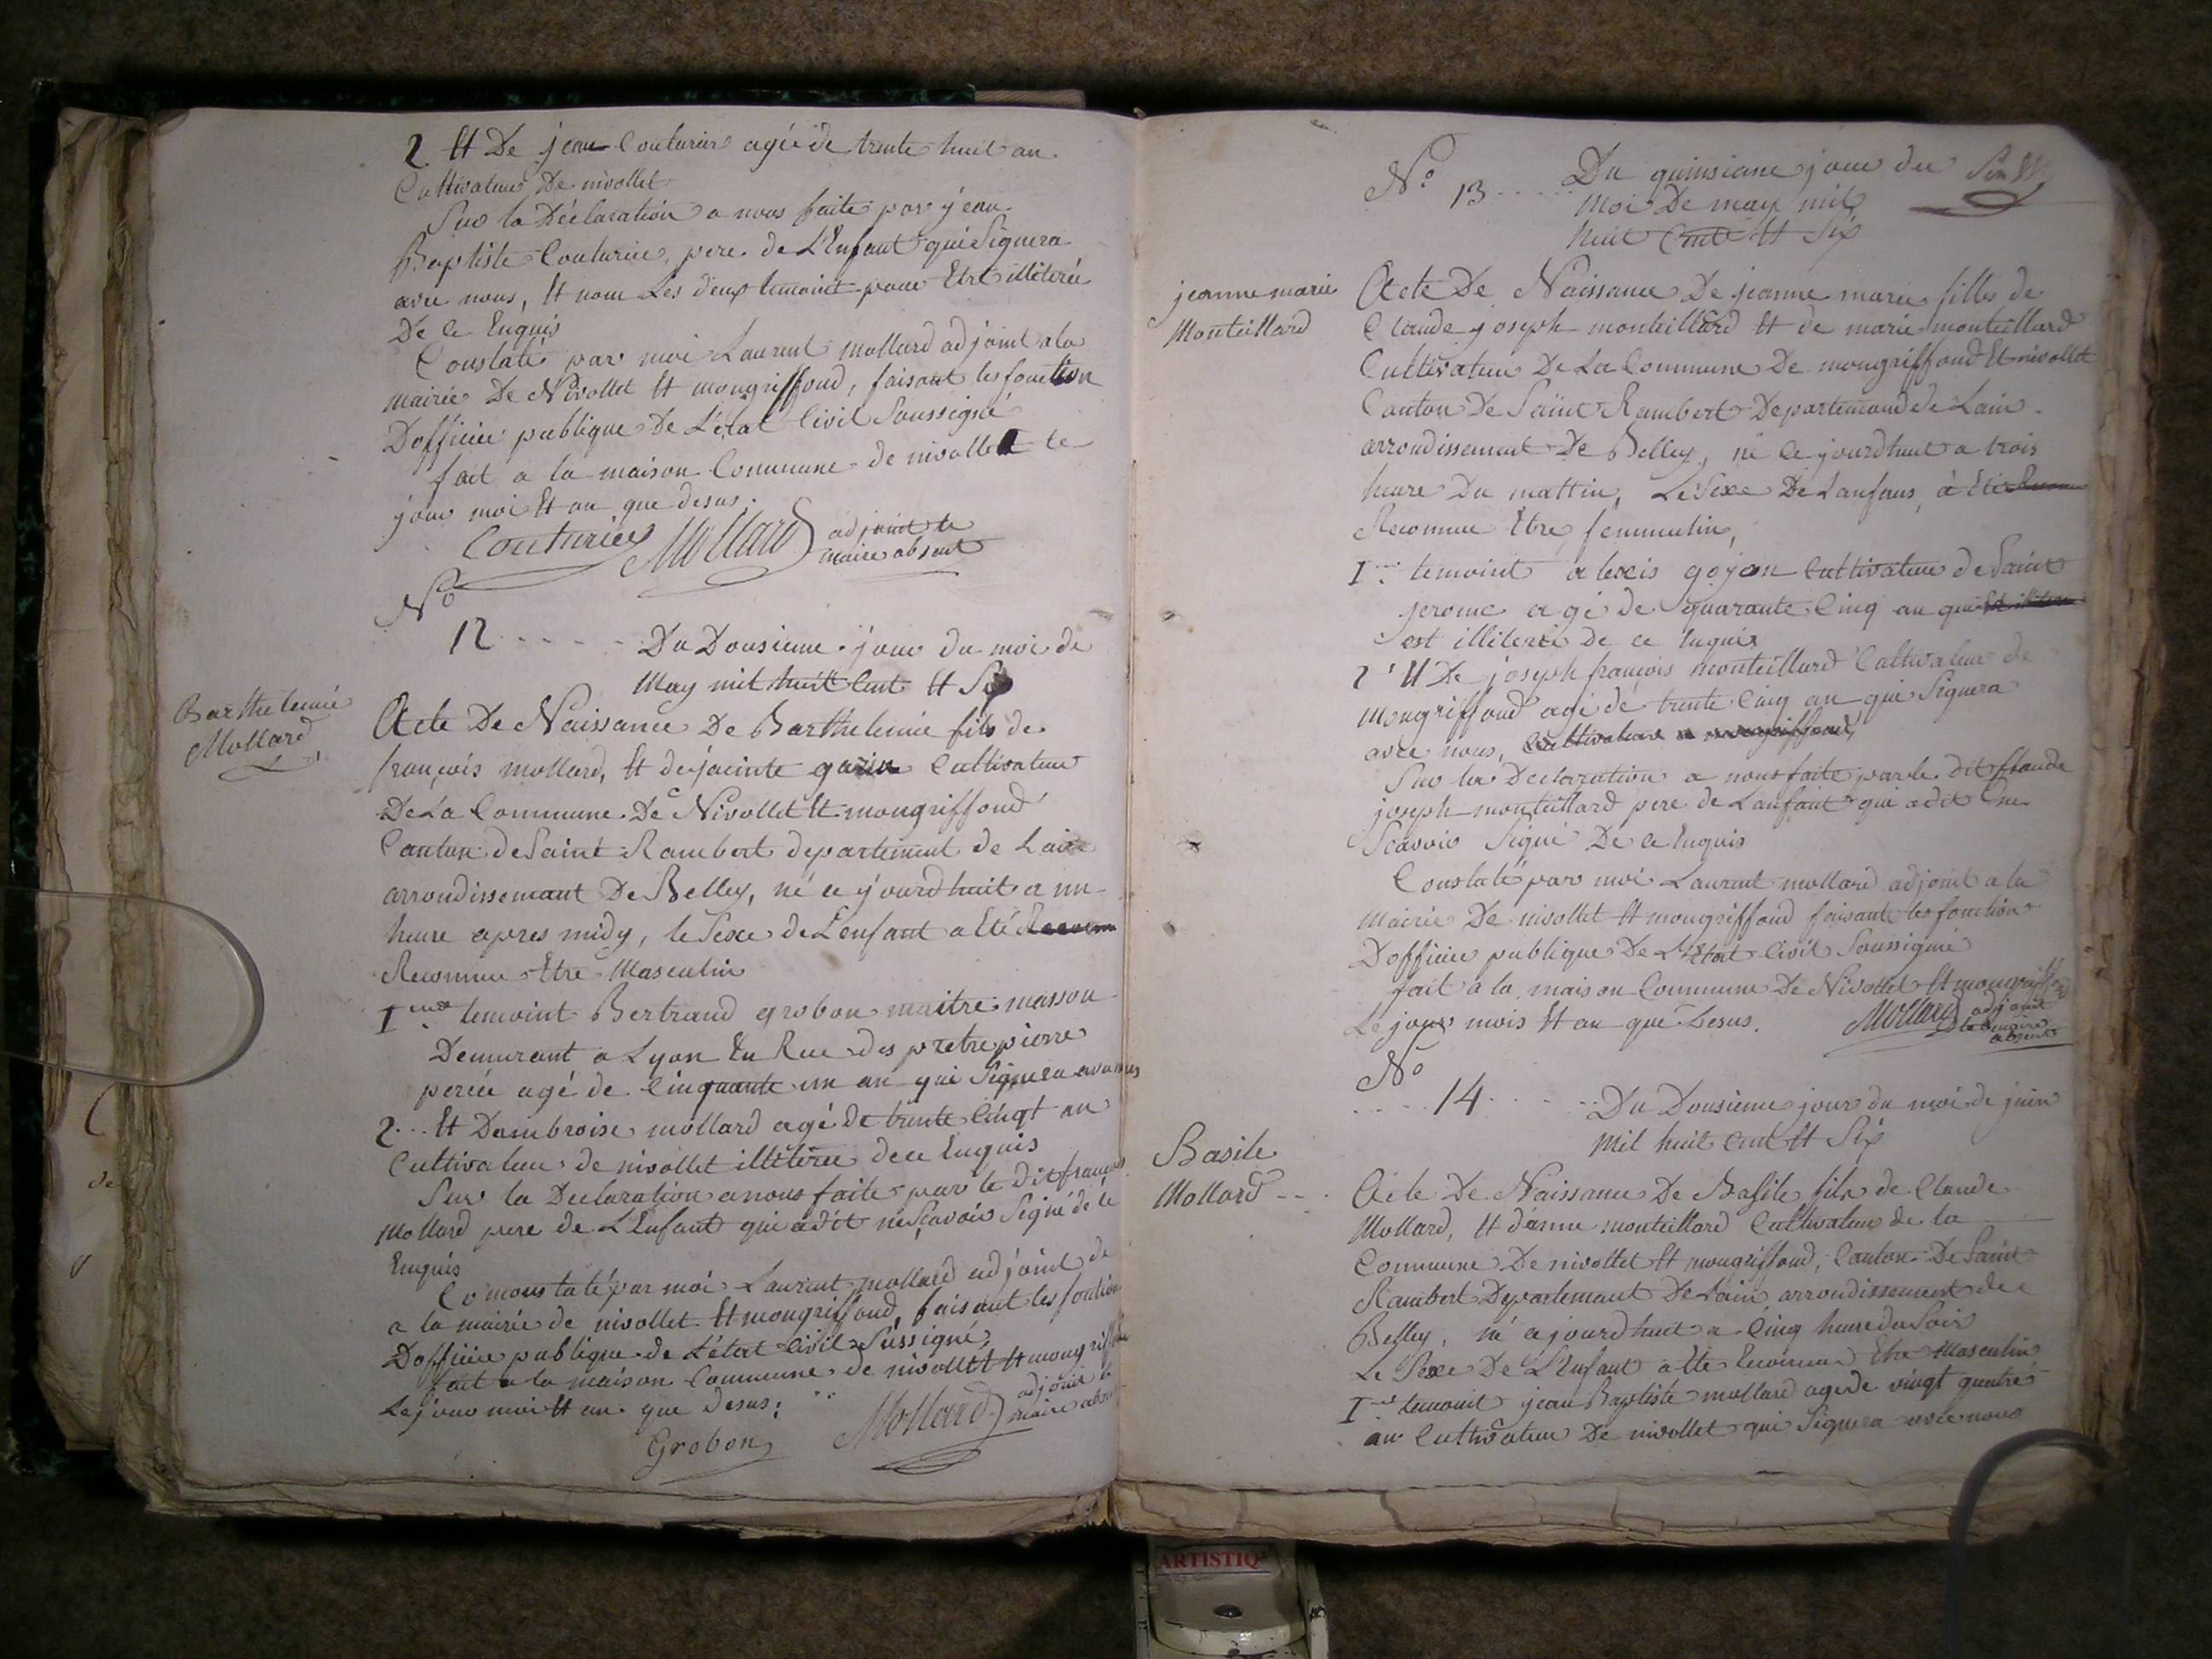 2 Et De jean Couturier agée de trente huit an
Cultivateur De nivollet
Sur la Déclaration a nous faite par jean
Baptiste Couturier, pere de L'Enfant qui Signera
avec nous, Et nom Les deux temoint pour Etre illiterée
De ce Enquis
Constaté par moi Laurent mollard adjoint a la
mairie De Nivollet Et mongriffond, faisant les fonction
Dofficier publique De L'état Civil Soussigné
fait a la maison Commune de nivollet le
jour moi Et an que desus.
Couturier Mollard adjoint le
maire absent
No
12 Du Dousieme jour du moi de
May mil huit Cent Et Six
Barthelemié
Mollard
Acte De Naissance De Barthelemié fils de
françois mollard, Et de jacinte garin Cultivateur
De La Commune De Nivollet Et mongriffond
Canton de Saint Rambert departement de Lain
arrondissemant De Belley, né ce jourdhuit a un
heure apres midy, le Sexe de L'enfant a Eté
Reconnu Etre Masculin
I temoint Bertrand grobon maitre masson
Demurant a Lyon En Rue des pretre pierre
percée agé de Cinquante un an qui Signera avec nous
2 Et Dambroise mollard agé De trente Cinqt an
Cultivateur de nivollet illiterée de ce Enquis
Sur la Declaration a nous faite par le Dit françois
Mollard pere de L'Enfant qui a dit ne Scavoir Signé de ce
Enquis
Co nonstaté par moi Laurent mollard adjoint de
a la mairie de nivollet Et mongriffond, faisant les fontion
Dofficier publique de L'état Civil Sussigné,
fait a la maison Commune de nivollet Et mongriffond
Le jour moi Et an que Desus:
Grobon Mollard adjoint le
maire absent
No 13 Du quinsieme jour du
Moi De may mil
huit Cent Et Six
jeanne marie
Monteillard
Acte De Naissance De jeanne marie filles de
Claude joseph monteillard Et de marie monteillard
Cultivateur De La Commune De mongriffond Et nivollet
Canton De Saint Rambert Departemand de Lain
arrondissement De Belley, né ce jourdhuit a trois
heure Du mattin, Le Sexe De Lanfans, à Eté
Reconnue Etre femmulin,
I temoint alexis goyon Cultivateur de Saint
jerome agé de quarante Cinq an qui
est illiteré de ce Enquis
2 Et De joseph françois monteillard Cultivateur de
Mongriffond agé de trente Cinq an qui Signera
avec nous, Cultivateur a mongriffond,
Sur la Declaration a nous faite par le dit Claude
joseph monteillard pere de Lanfant qui a dit Une
Scavoir Signé De ce Enquis
Constaté par moi Laurent mollard adjoint a la
mairie De nivollet Et mongriffond faisant les fonction
Dofficier publique De L'Etat Civil Soussigné
fait a la maison Commune De Nivollet Et mongriffond
Le jour mois Et an que Desus. Mollard adjoint
le maire
absent
No
14 Du Dousieme jour du moi de juin
Mil huit Cent Et Six
Basile
Mollard
Acte De Naissance De Basile fils de Claude
Mollard, Et d'anne monteillard Cultivateur de la
Commune De nivollet Et mongriffond, Canton De Saint
Rambert Departemant De Lain, arrondissement de
Belley, né ajourdhuit a Cinq heure du Soir
Le Sexe De L'Enfant a Eté Reconnu Etre Masculin
I temoint jean Baptiste mollard age de vingt quatre
an Cultivateur De nivollet qui Signera avec nous
ARTISTIQ